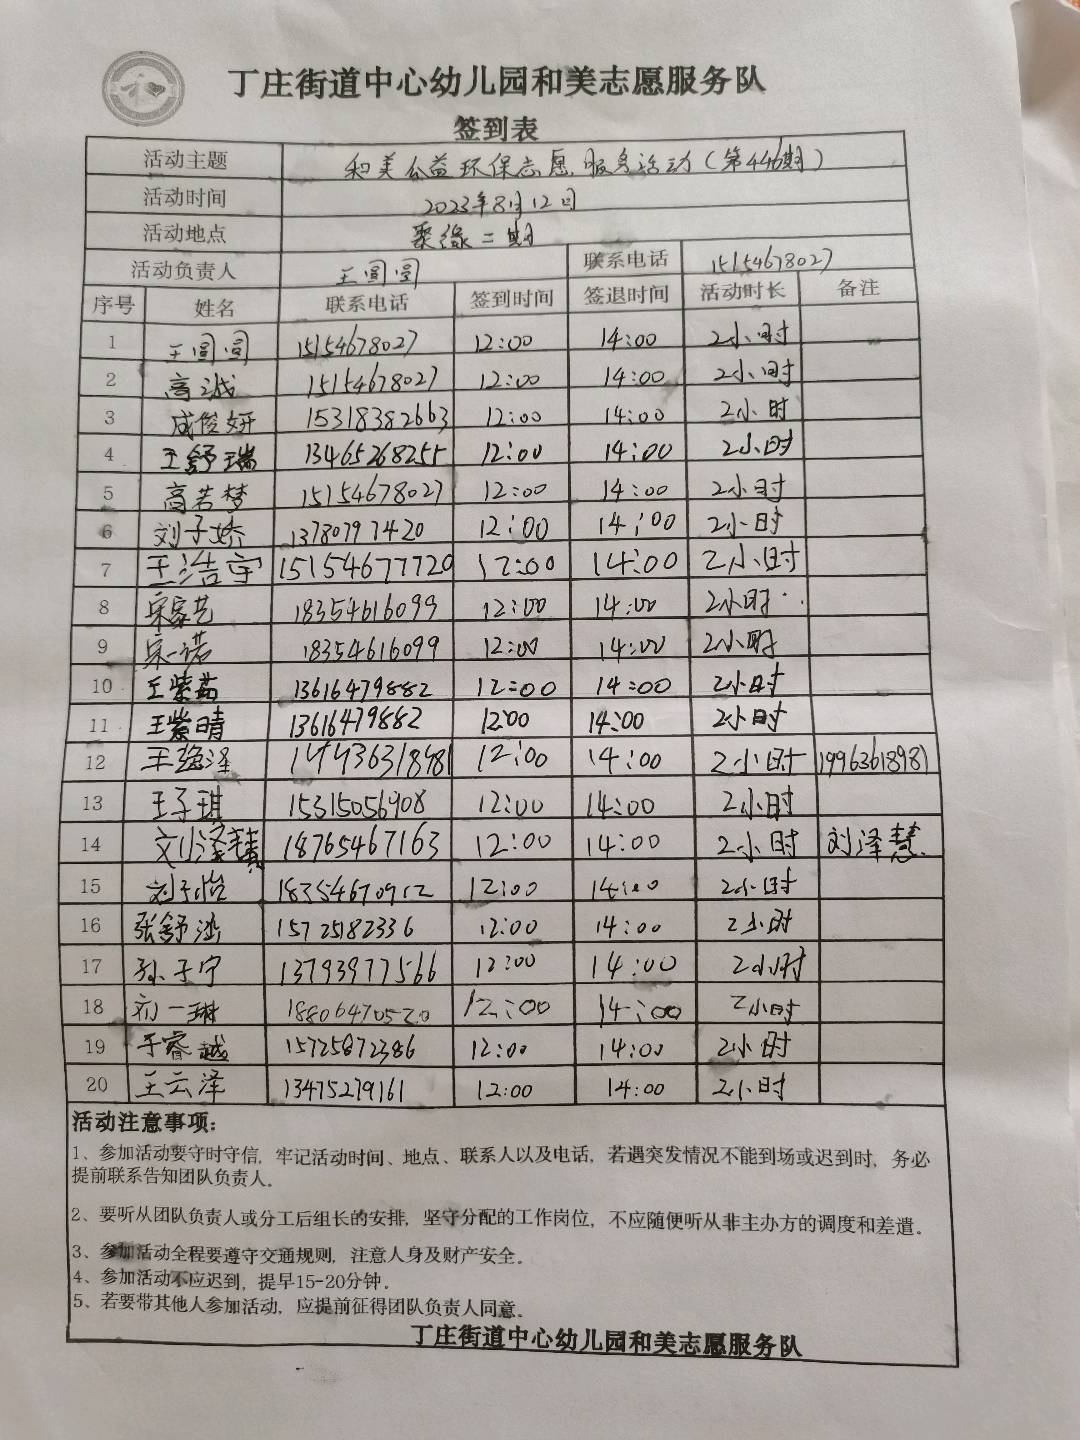 丁庄街道中心幼儿园和美志愿服务队
签到表
活动主题 和美公益环保志愿服务活动(第446期)
活动时间 2023年8月12日
活动地点 聚缘二期
活动负责人 王圆圆 联系电话 15154678027
序号 姓名 联系电话 签到时间 签退时间 活动时长 备注
1 王圆圆 15154678027 12:00 14:00 2小时
2 高诚 15154678027 12:00 14:00 2小时
3 成俊妍 15318382663 12:00 14:00 2小时
4 王舒瑞 13465268255 12:00 14:00 2小时
5 高若梦 15154678027 12:00 14:00 2小时
6 刘子娇 13780797420 12:00 14:00 2小时
7 王浩宇 15154677720 12:00 14:00 2小时
8 宋家艺 18354616099 12:00 14:00 2小时
9 宋一诺 18354616099 12:00 14:00 2小时
10 王紫茹 13616479882 12:00 14:00 2小时
11 王紫晴 13616479882 12:00 14:00 2小时
12 王 泽 12:00 14:00 2小时 19963618981
13 王子琪 15315056908 12:00 14:00 2小时
14 刘泽慧 18765467163 12:00 14:00 2小时 刘泽慧
15 刘子怡 18354670912 12:00 14:00 2小时
16 张舒涵 15725182336 12:00 14:00 2小时
17 孙子宁 13793977566 12:00 14:00 2小时
18 刘一琳 18806470520 12:00 14:00 2小时
19 于睿越 15725872386 12:00 14:00 2小时
20 王云泽 13475279161 12:00 14:00 2小时
活动注意事项:
1、参加活动要守时守信,牢记活动时间、地点、联系人以及电话,若遇突发情况不能到场或迟到时,务必
提前联系告知团队负责人。
2、要听从团队负责人或分工后组长的安排,坚守分配的工作岗位,不应随便听从非主办方的调度和差遣。
3、参加活动全程要遵守交通规则,注意人身及财产安全。
4、参加活动不应迟到,提早15-20分钟。
5、若要带其他人参加活动,应提前征得团队负责人同意。
丁庄街道中心幼儿园和美志愿服务队